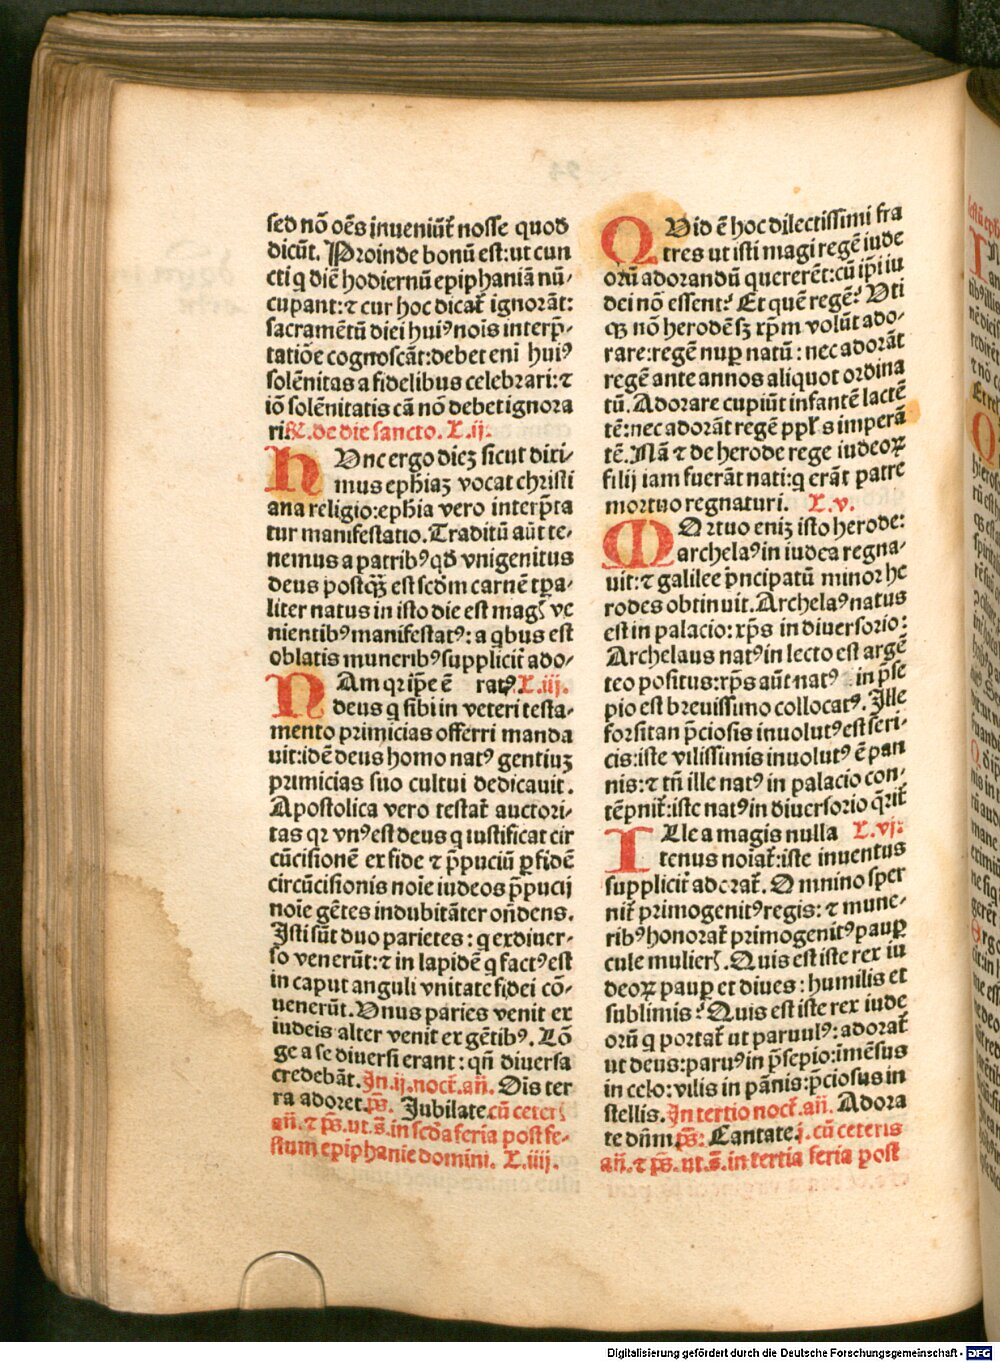 sed nõ oẽs inveniũt᷑ nosse quod
dicũt. Proinde bonũ est: ut cun
cti q diẽ hodiernũ epiphaniã nũ⸗
cupant: ⁊ cur hoc dicat᷑ ignorãt:
sacramẽtũ diei huiꝰ nois̃ interp̃⸗
tatiõe cognoscãt: debet eni̇̃ huiꝰ
solẽnitas a fidelibus celebrari: ⁊
iõ solẽnitatis cã nõ debet ignora
ri. ℞. de die sancto. L.ij.
HVnc ergo dieȝ sicut diri⸗
mus ephiaȝ vocat christi
ana religio: ephia vero interp̃ta
tur manifestatio. Traditũ aũt te⸗
nemus a patribꝰ qđ vnigenitus
deus postqȝ̃ est scđm carnẽ tp̃a⸗
liter natus in isto die est magꝭ ve
nientibꝰ manifestatꝰ: a qbus est
oblatis muneribꝰ supplicit᷑ ado⸗
NAm qr ip̃e ẽ ratꝰ. L.iij.
deus q sibi in veteri testa⸗
mento primicias offerri manda
uit: idẽ deus homo natꝰ gentiuȝ
primicias suo cultui dedicauit.
Apostolica vero testat᷑ auctori⸗
tas qr vnꝰ est deus q iustificat cir
cũcisionẽ ex fide ⁊ p̃puciũ ꝑ fidẽ
circũcisionis noie iudeos p̃pucij
noie gẽtes indubitãter oñdens.
Isti sũt duo parietes: q ex diuer⸗
so venerũt: ⁊ in lapidẽ q factꝰ est
in caput anguli vnitate fidei cõ⸗
uenerũt. Vnus paries venit ex
iudeis alter venit ex gẽtibꝰ. Lõ
ge a se diuersi erant: qñ diuersa
credebãt. In .ij. noct᷑. añ. Ois ter
ra adoret. ps̃. Jubilate. cũ ceterꝭ
añ. ⁊ ps̃. ut. s̃. in scđa feria post fe⸗
stum epiphanie domini. L.iiij.
QVid ẽ hoc dilectissimi fra
tres ut isti magi regẽ iude
orũ adorandũ quererẽt: cũ ip̃i iu
dei nõ essent? Et quẽ regẽ? Vti
qȝ nõ herodẽ sȝ xp̃m volũt ado⸗
rare: regẽ nuꝑ natũ: nec adorãt
regẽ ante annos aliquot ordina
tũ. Adorare cupiũt infantẽ lactẽ
tẽ: nec adorãt regẽ ppl̃s imperã
tẽ. Nã ⁊ de herode rege iudeoꝝ
filij iam fuerãt nati: q erãt patre
mortuo regnaturi. L.v.
MOrtuo eniȝ isto herode:
archelaꝰ in iudea regna⸗
uit: ⁊ galilee p̃ncipatũ minor he
rodes obtinuit. Archelaꝰ natus
est in palacio: xp̃s in diuersorio:
Archelaus natꝰ in lecto est argẽ
teo positus: xp̃s aũt natꝰ in p̃se
pio est breuissimo collocatꝰ. Ille
forsitan p̃ciosis inuolutꝰ est seri⸗
cis: iste vilissimis inuolutꝰ ẽ pan
nis: ⁊ tñ ille natꝰ in palacio con⸗
tẽpnit᷑: iste natꝰ in diuersorio q̃rit᷑
ILle a magis nulla L.vj.
tenus noiat᷑: iste inuentus
supplicit᷑ adorat᷑. Omnino sper
nit᷑ primogenitꝰ regis: ⁊ mune⸗
ribꝰ honorat᷑ primogenitꝰ pauꝑ
cule mulierꝭ. Quis est iste rex iu
deoꝝ pauꝑ et diues: humilis et
sublimis? Quis est iste rex iude
orũ q portat᷑ ut paruulꝰ: adorat᷑
ut deus: paruꝰ in p̃sepio: imẽsus
in celo: vilis in pãnis: p̃ciosus in
stellis. In tertio noct᷑. añ. Adora
te dñm. ps̃: Cantate. j. cũ ceteris
añ. ⁊ ps̃. ut. s̃. in tertia feria post
Digitalisierung gefördert durch die Deutsche Forschungsgemeinschaft - DFG